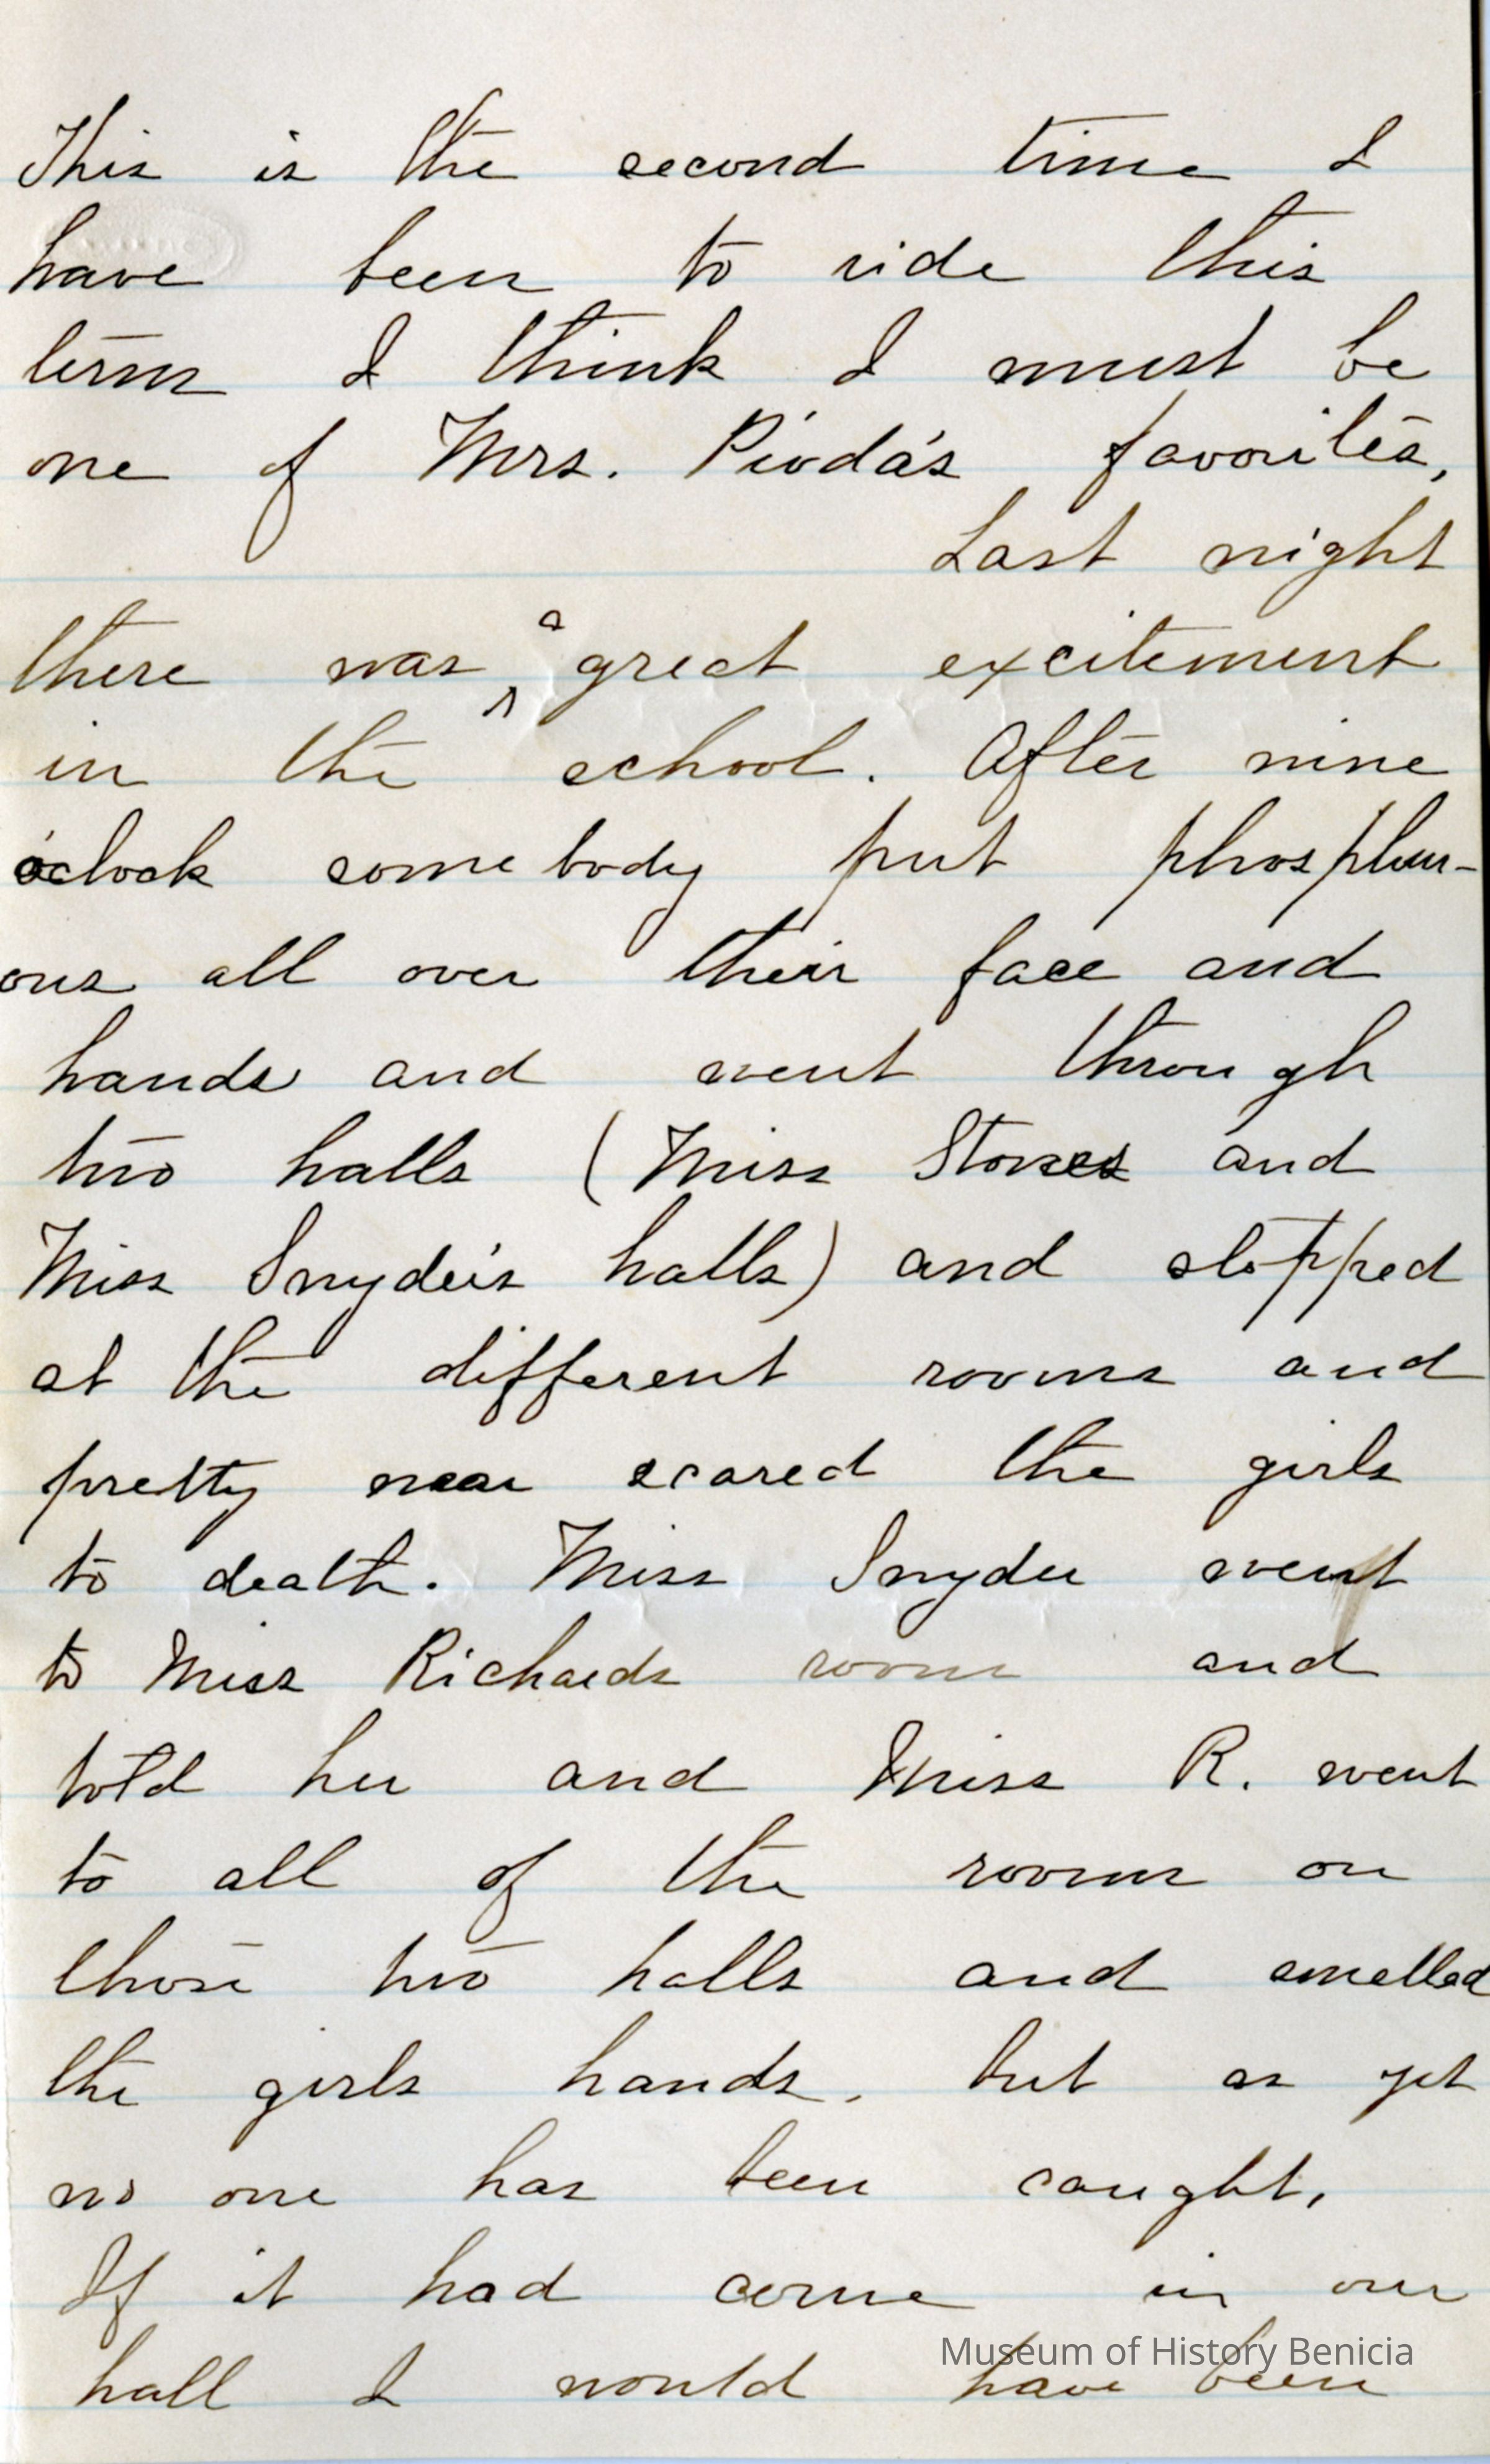 This is the second time I
have been to ride this
term I think I must be
one of Mrs. Pioda's favorites,
Last night
there was ^a great excitement
in the school. After nine
o'clock some body put phosphur-
ous all over their face and
hands and went through
two halls (Miss Stones and
Miss Snyder's halls) and stopped
at the different rooms and
pretty near scared the girls
to death. Miss Snyder went
to Miss Richards room and
told her and Miss R. went
to all of the rooms on
those two halls and smelled
the girls hands. but as yet
no one has been caught,
If it had come in our
hall I would have been
Museum of History Benicia